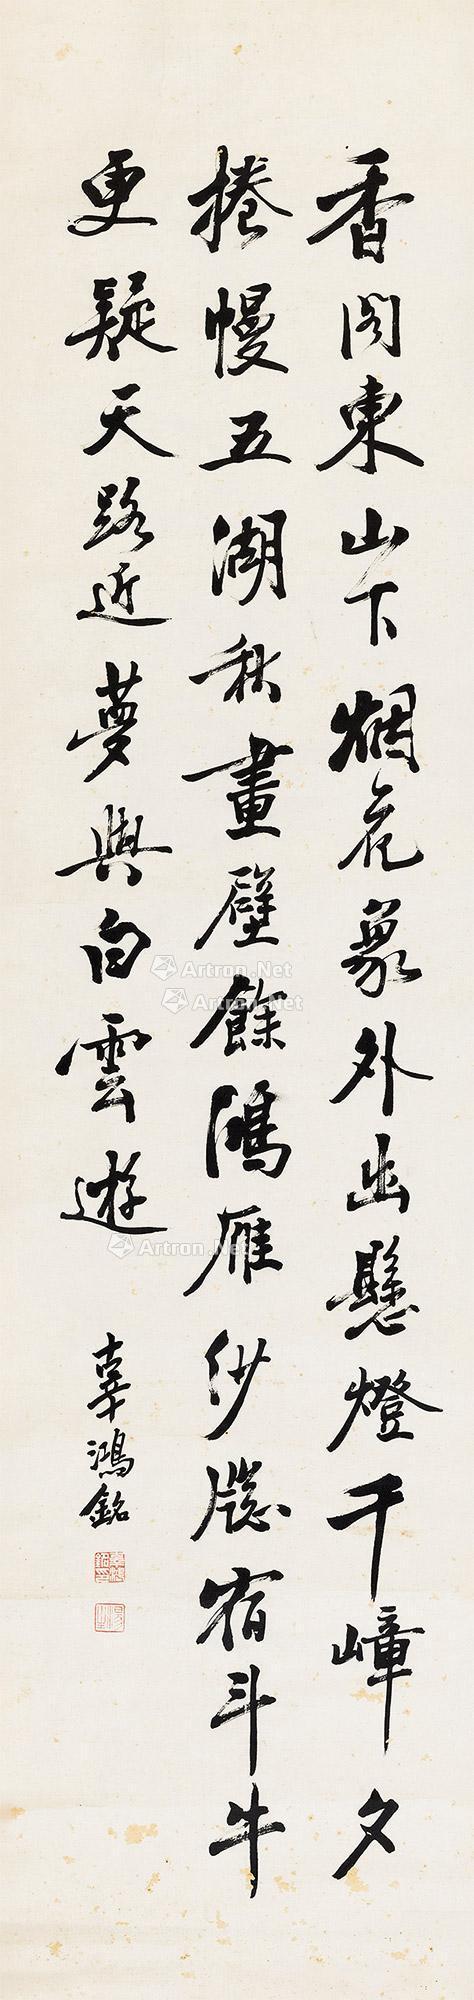 香閣東山下烟花象外出懸燈千嶂夕
捲幔五湖秋畫壁餘鴻雁紗牎宿斗牛
更疑天路近夢與白雲遊
辜鴻銘
Artron.Net
Artron.Net
Artron.Net